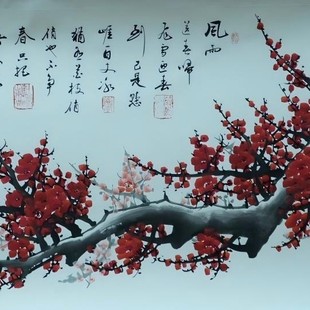 風雨
送春歸
飛雪迎春
到已是懸
崖百丈冰
猶有花枝俏
俏也不争
春只把